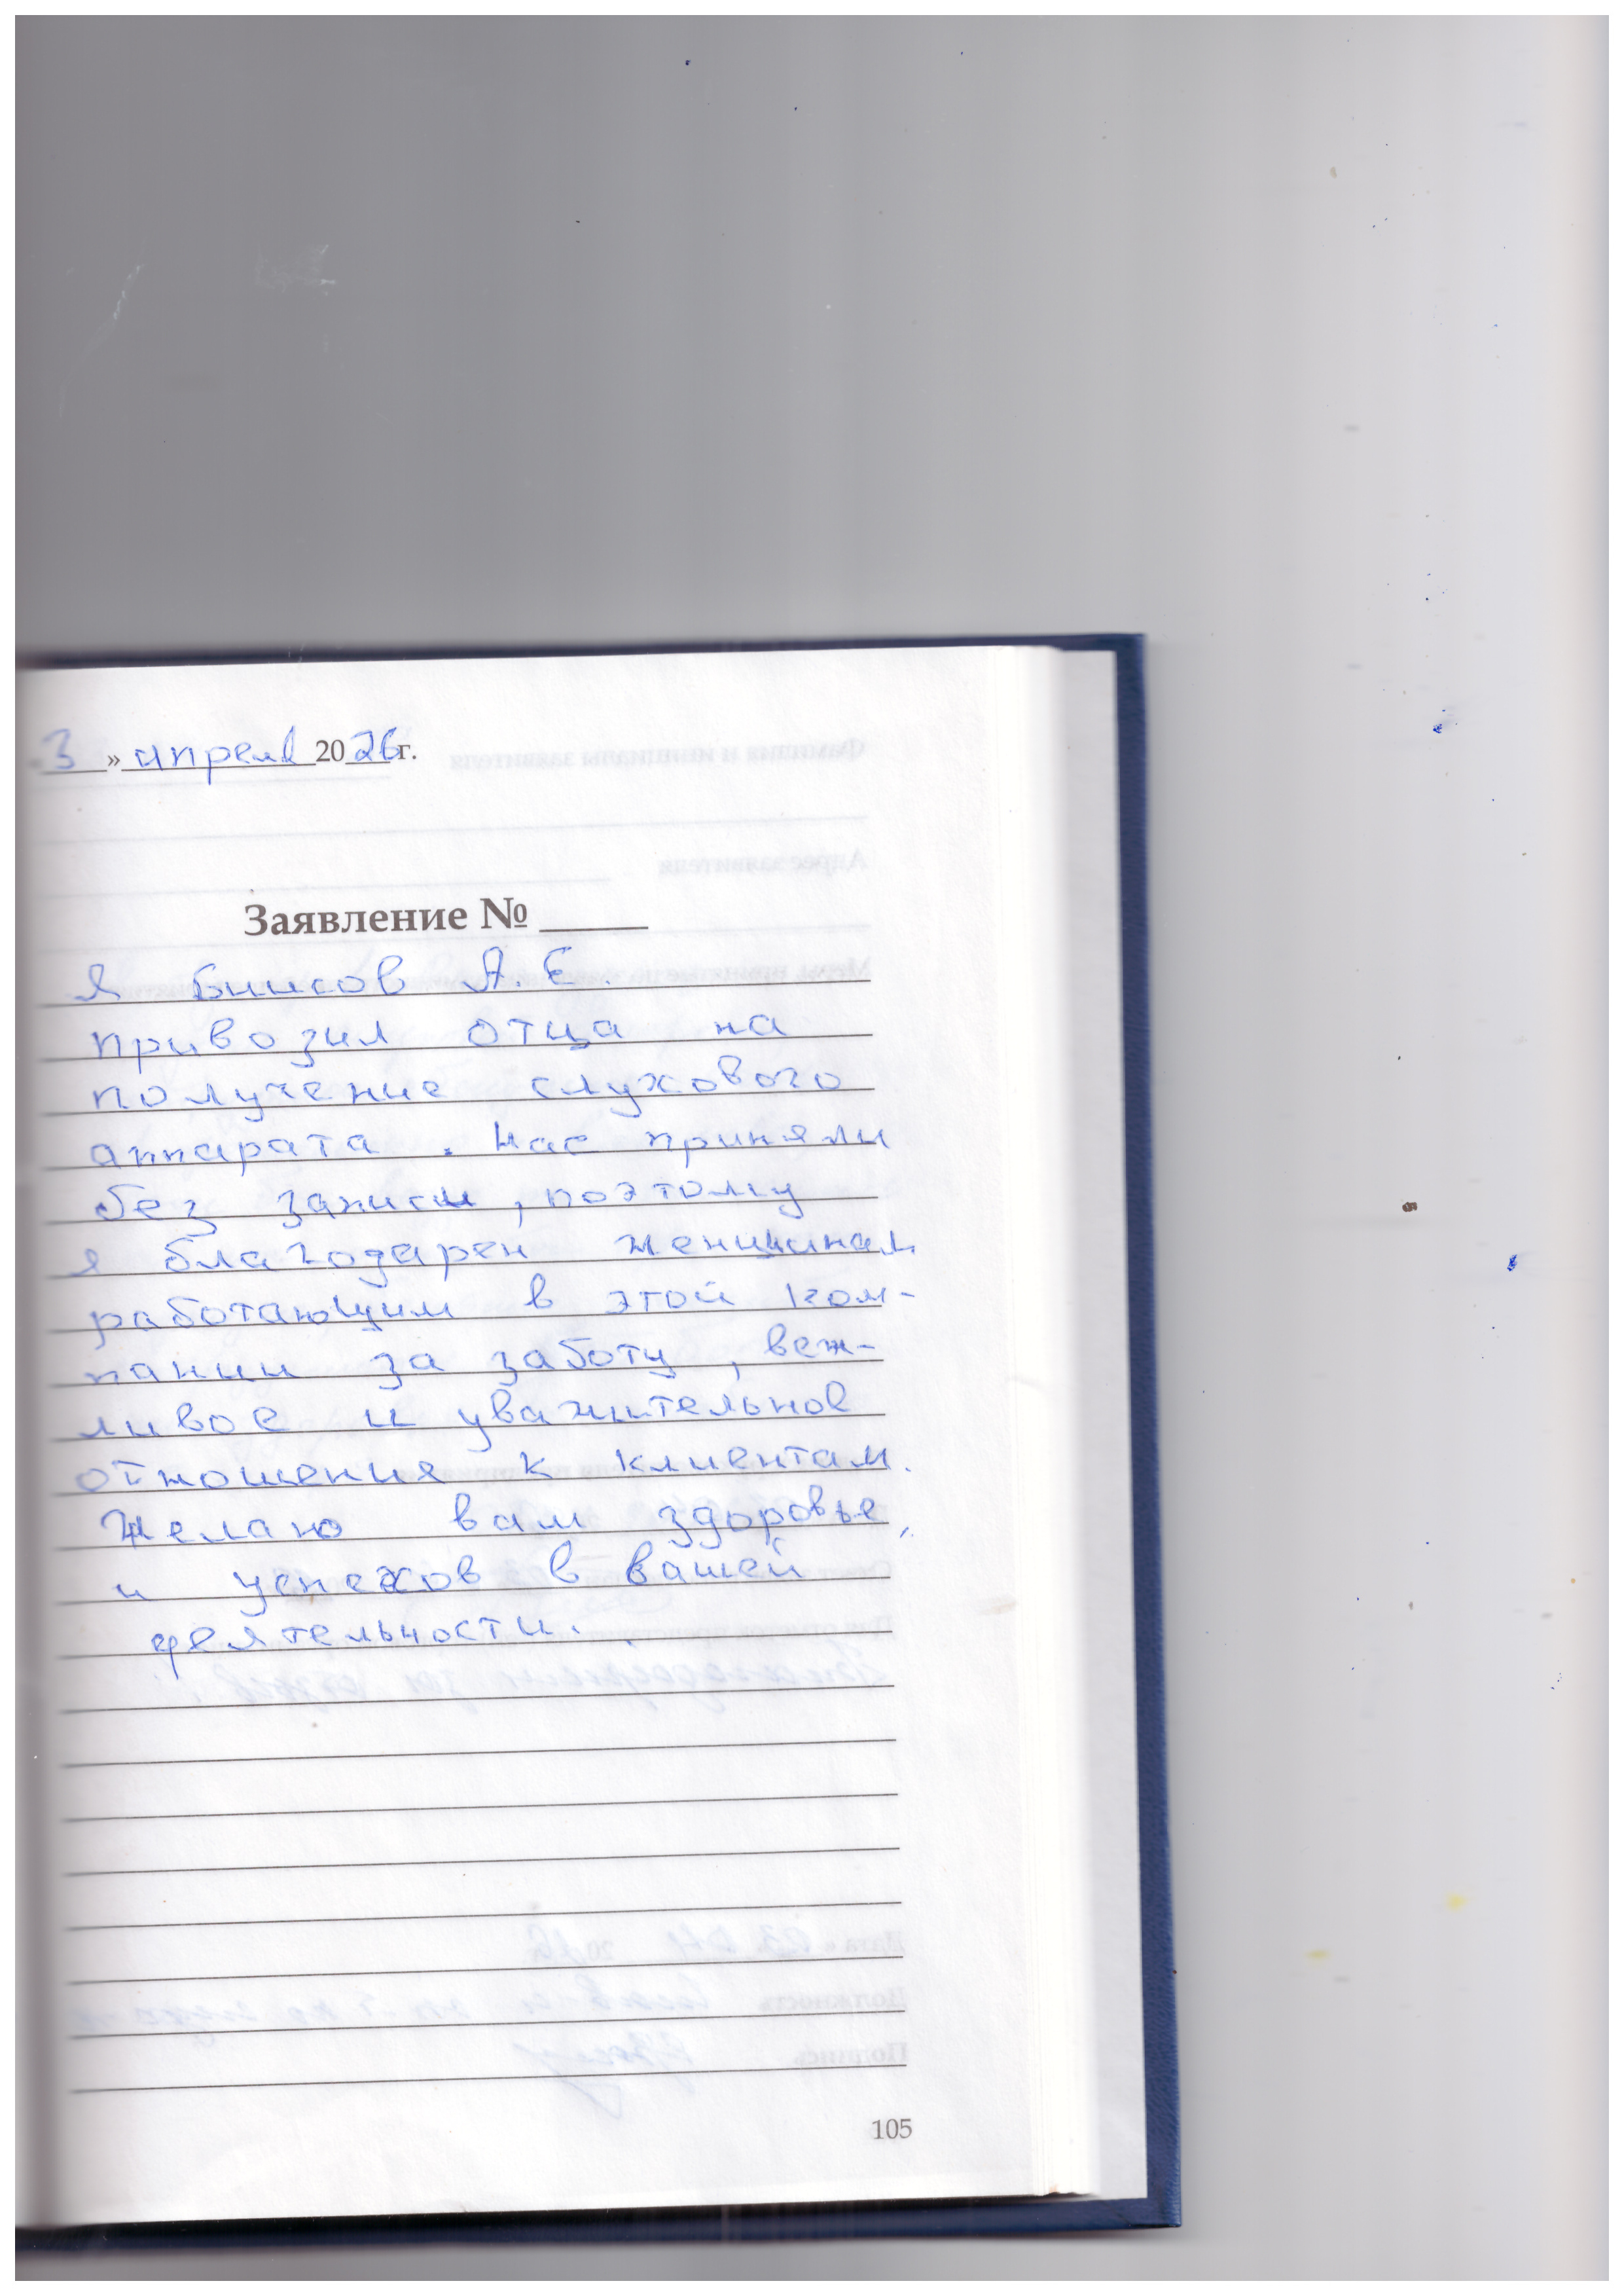 3 » апреля 2026г.
Заявление №
Я Бинсов А.Е.
привозил отца на
получение слухового
аппарата . Нас приняли
без записи , поэтому
я благодарен женщинам
работающим в этой ком-
пании за заботу , веж-
ливое и уважительное
отношения к клиентам.
Желаю вам здоровье,
и успехов в вашей
деятельности.
105